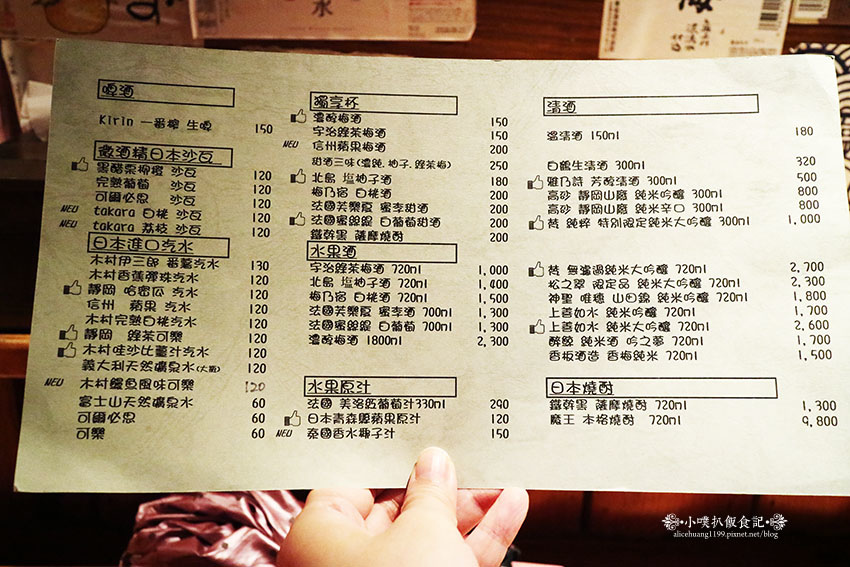 啤酒
Kirin 一番榨 生啤 150
微酒精日本沙瓦
黑醋栗柳橙 沙瓦 120
完熟葡萄 沙瓦 120
可爾必思 沙瓦 120
NEW takara 白桃 沙瓦 120
NEW takara 荔枝 沙瓦 120
日本進口汽水
木村伊三郎 番薑汽水 130
木村香蕉彈珠汽水 120
靜岡 哈密瓜 汽水 120
信州 蘋果 汽水 120
木村完熟白桃汽水 120
靜岡 綠茶可樂 120
木村哇沙比薑汁汽水 120
義大利天然礦泉水(大瓶) 120
NEW 木村鰻魚風味可樂 120
富士山天然礦泉水 60
可爾必思 60
可樂 60
獨享杯
濃醇梅酒 150
宇治綠茶梅酒 150
NEW 信州蘋果梅酒 200
甜酒三味(濃醇.柚子.綠茶梅) 250
北島 塩柚子酒 180
梅乃宿 白桃酒 200
法國芙樂夏 蜜李甜酒 200
法國蜜鍶緹 白葡萄甜酒 200
鐵幹黑 薩摩燒酎 200
水果酒
宇治綠茶梅酒 720ml 1,000
北島 塩柚子酒 720ml 1,400
梅乃宿 白桃酒 720ml 1,500
法國芙樂夏 蜜李酒 700ml 1,300
法國蜜鍶緹 白葡萄 700ml 1,300
濃醇梅酒 1800ml 2,300
水果原汁
法國 美洛紅葡萄汁330ml 290
日本青森縣蘋果原汁 120
NEW 泰國香水椰子汁 150
清酒
溫清酒 150ml 180
白鶴生清酒 300ml 320
雅乃詩 芳醇清酒 300ml 500
高砂 靜岡山廢 純米吟釀 300ml 800
高砂 靜岡山廢 純米辛口 300ml 800
梵 純粹 特別限定純米大吟釀 300ml 1,000
梵 無濾過純米大吟釀 720ml 2,700
松之翠 限定品 純米大吟釀 720ml 2,300
神聖 唯穗 山田錦 純米吟釀 720ml 1,800
上善如水 純米吟釀 720ml 1,700
上善如水 純米大吟釀 720ml 2,600
醉鯨 純米酒 吟之夢 720ml 1,700
香板酒造 香梅純米 720ml 1,500
日本燒酎
鐵幹黑 薩摩燒酎 720ml 1,300
魔王 本格燒酎 720ml 9,800
小噗扒飯食記
alicehuang1199.pixnet.net/blog